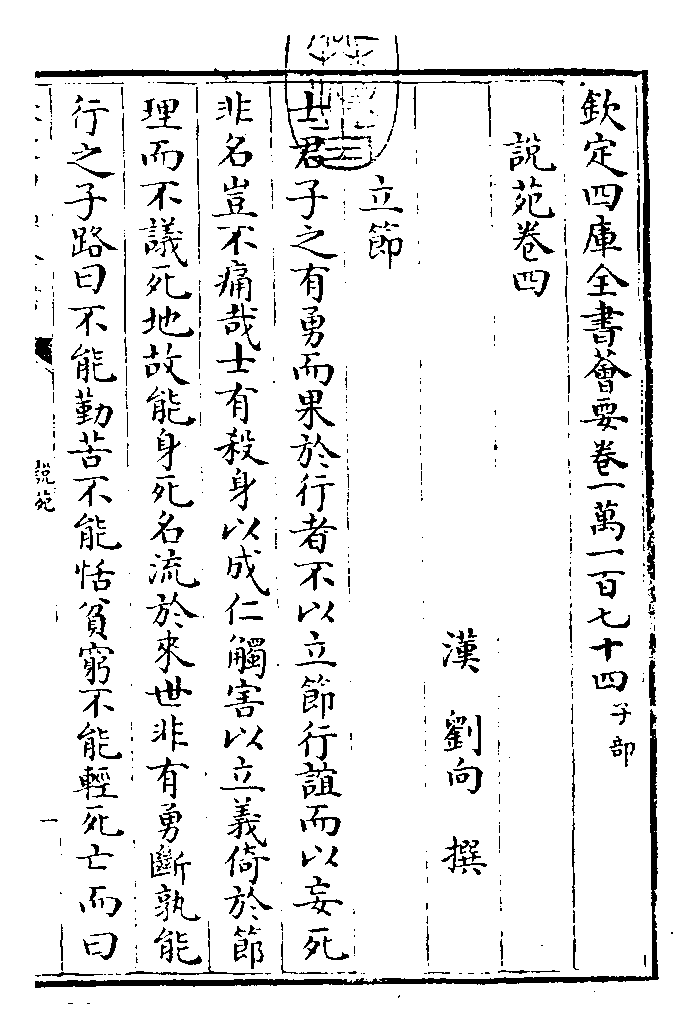 欽定四庫全書薈要卷一萬一百七十四子部
說苑卷四
漢劉向撰
立節
士君子之有勇而果於行者不以立節行誼而以妄死
非名豈不痛哉士有殺身以成仁觸害以立義倚於節
理而不議死地故能身死名流於來世非有勇斷孰能
行之子路曰不能勤苦不能恬貧窮不能輕死亡而曰
說苑
一